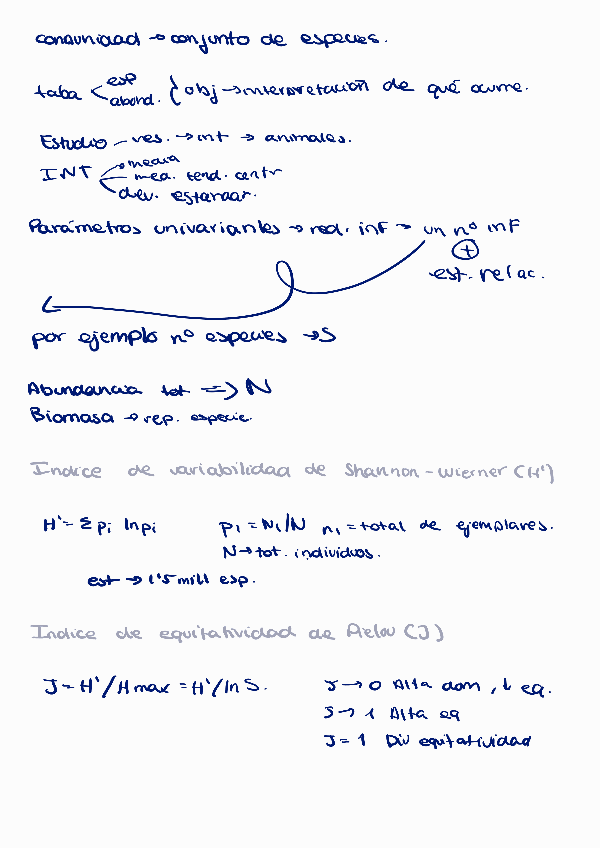 comunidad → conjunto de especies.
taba < esp abond. { obj → interpretación de qué ocurre.
Estudio – ves. → int → animales.
INT media
mea. tend. centr
dev. estandar.
Parámetros univariantes → red. inf → un nº inf
+
est. relac.
por ejemplo nº especies → S
Abundancia tot => N
Biomasa → rep. especie.
Indice de variabilidad de Shannon-Wierner (H')
H' = Σ pi ln pi pi = Ni/N ni = total de ejemplares.
N → tot. individuos.
est → 1'5 mill esp.
Indice de equitatividad de Pielou (J)
J = H'/Hmax = H'/ln S. J → 0 Alta dom, ↓ eq.
J → 1 Alta eq
J = 1 Div equitatividad